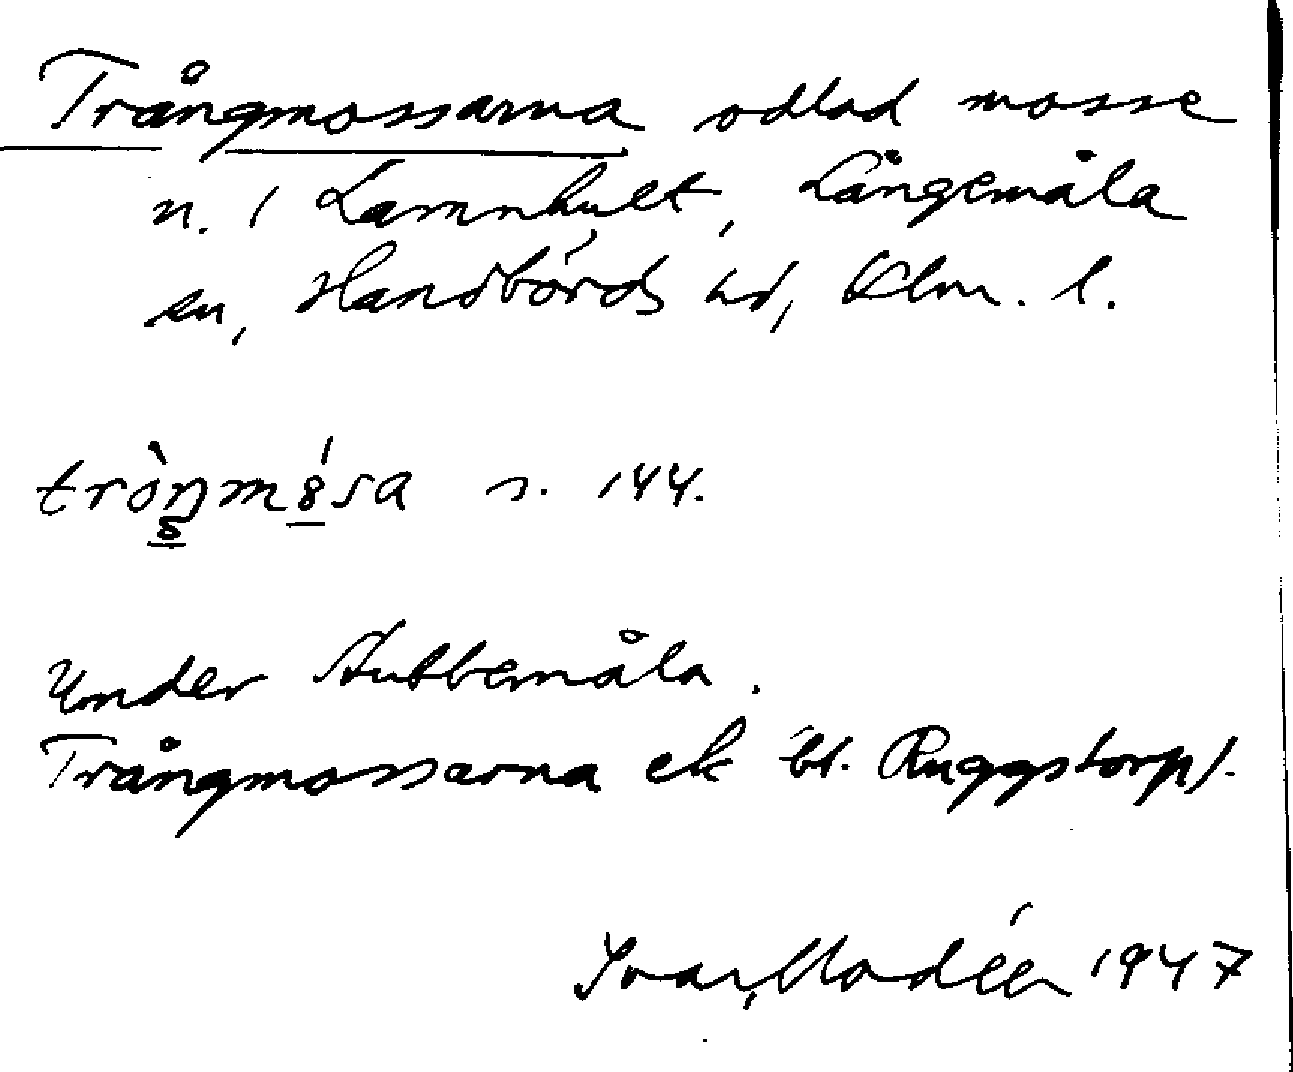 Trångmossarna odlad mosse
n. i Lamnhult, Långemåla
sn, Handbörds hd, Klm. l.
s. 144.
Under Stubbemåla.
Trångmossarna ek bl. Ruggstorp).
Ivar Modéer 1947